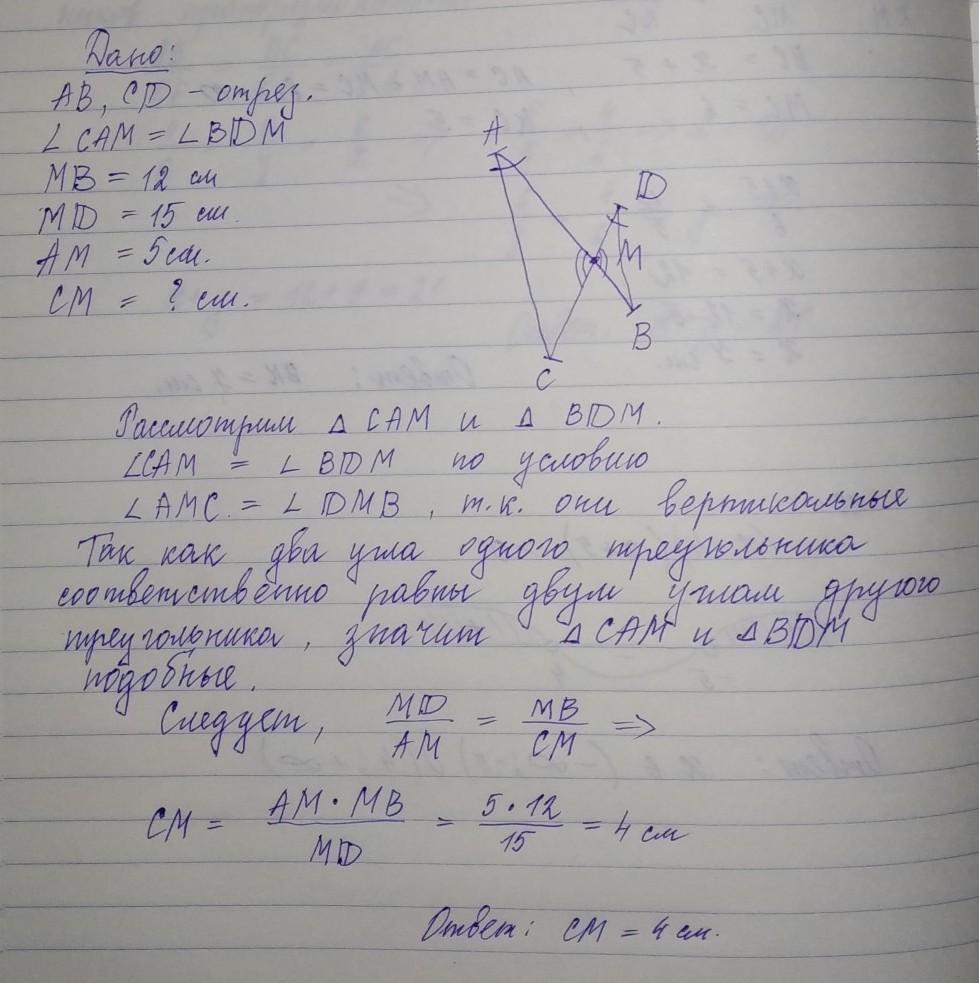 Дано:
AB, CD - отрез.
∠CAM = ∠BDM
MB = 12 см
MD = 15 см.
AM = 5 см.
CM = ? см.
A
D
M
B
C
Рассмотрим Δ CAM и Δ BDM.
∠CAM = ∠ BDM по условию
∠AMC = ∠ DMB, т.к. они вертикальные
Так как два угла одного треугольника
соответственно равны двум углам другого
треугольника, значит ΔCAM и ΔBDM
подобные.
Следует, MD/AM = MB/CM =>
CM = AM·MB/MD = 5·12/15 = 4 см
Ответ: CM = 4 см.